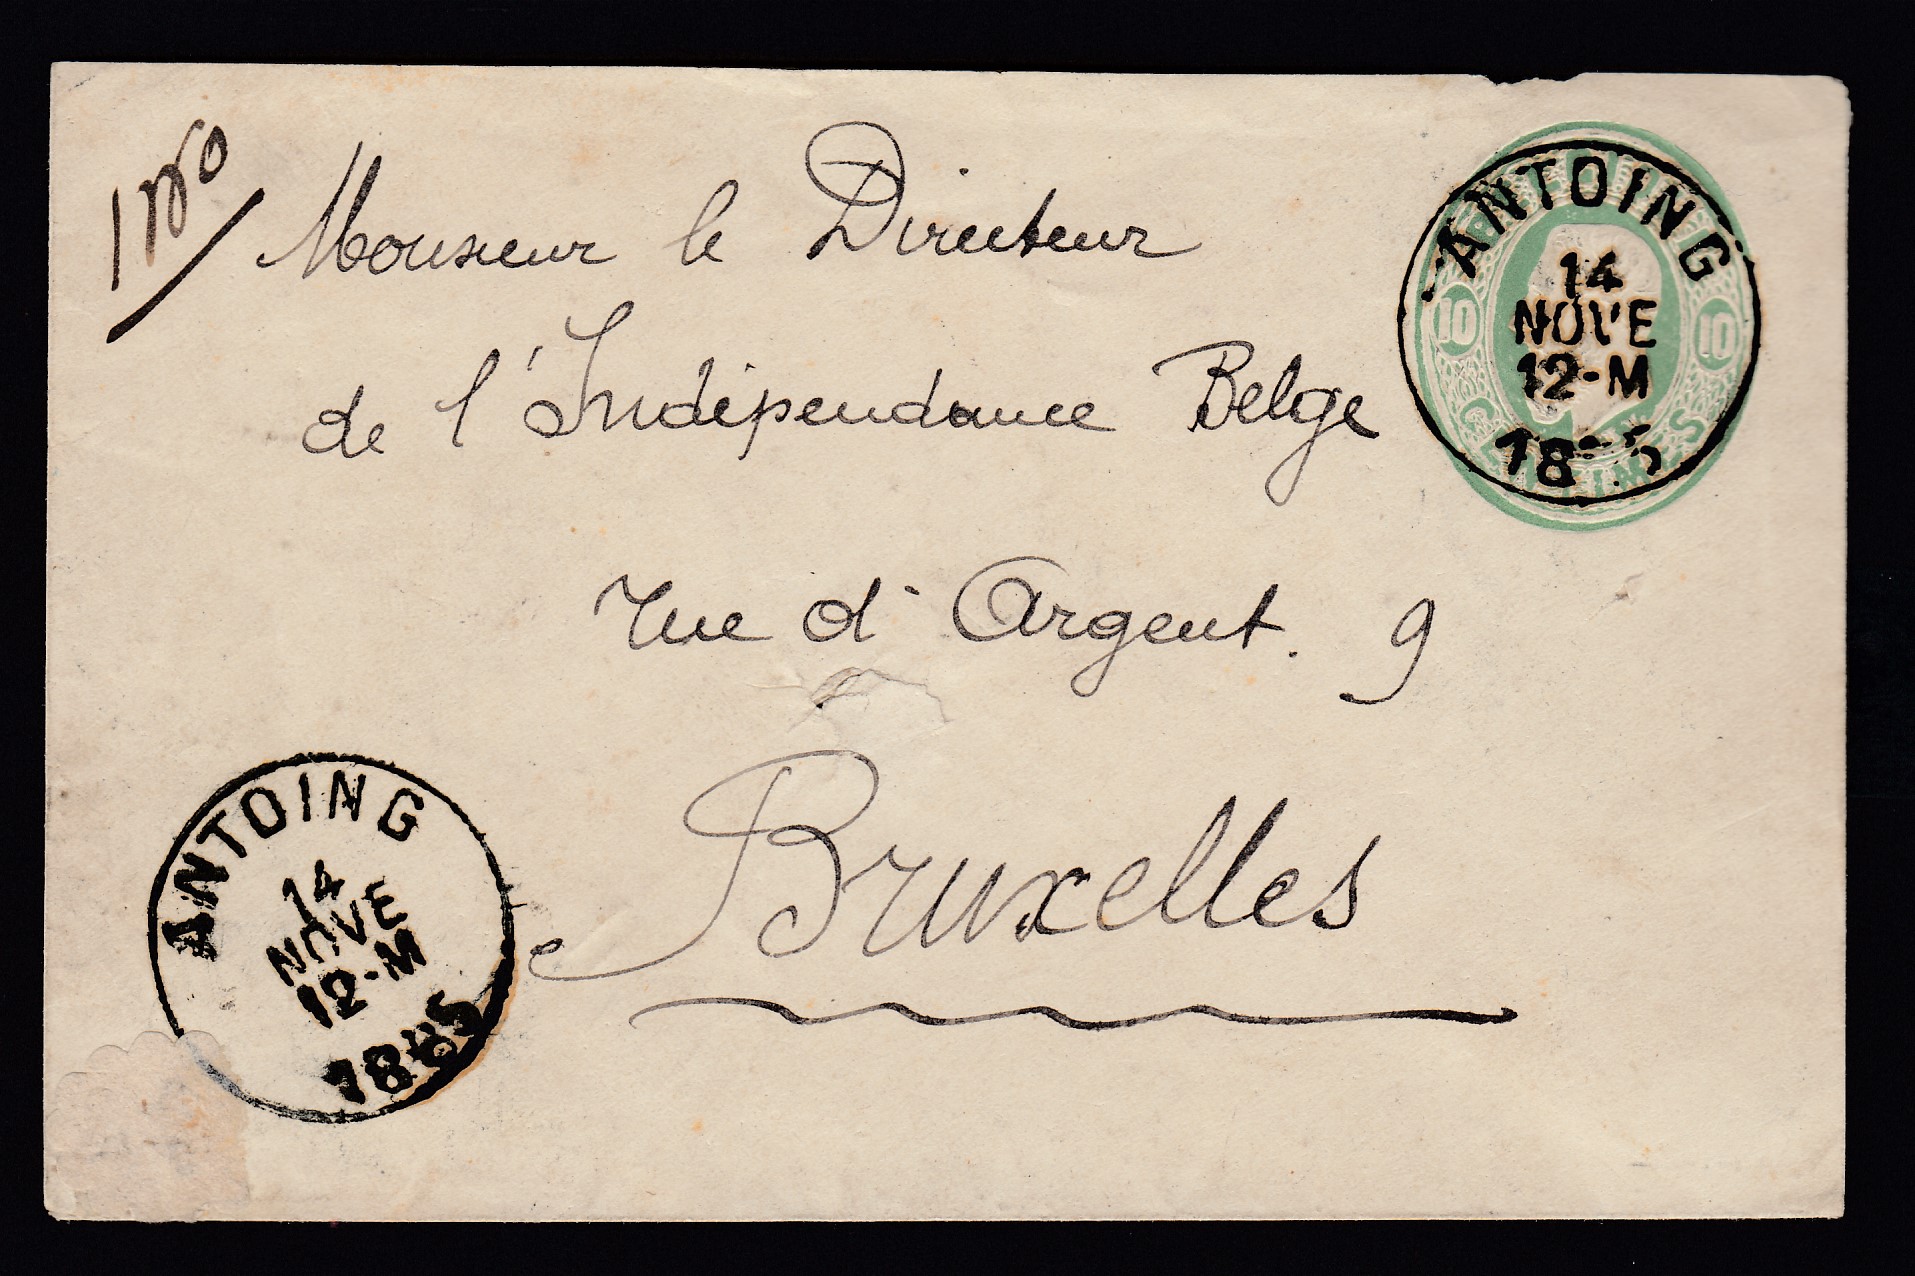 Monsieur le Directeur
de l'Indépendance Belge
rue d'Argent. 9
Bruxelles
ANTOING
14
NOVE
12-M
18 5
10 10
CENTIMES
ANTOING
14
NOVE
12-M
1885